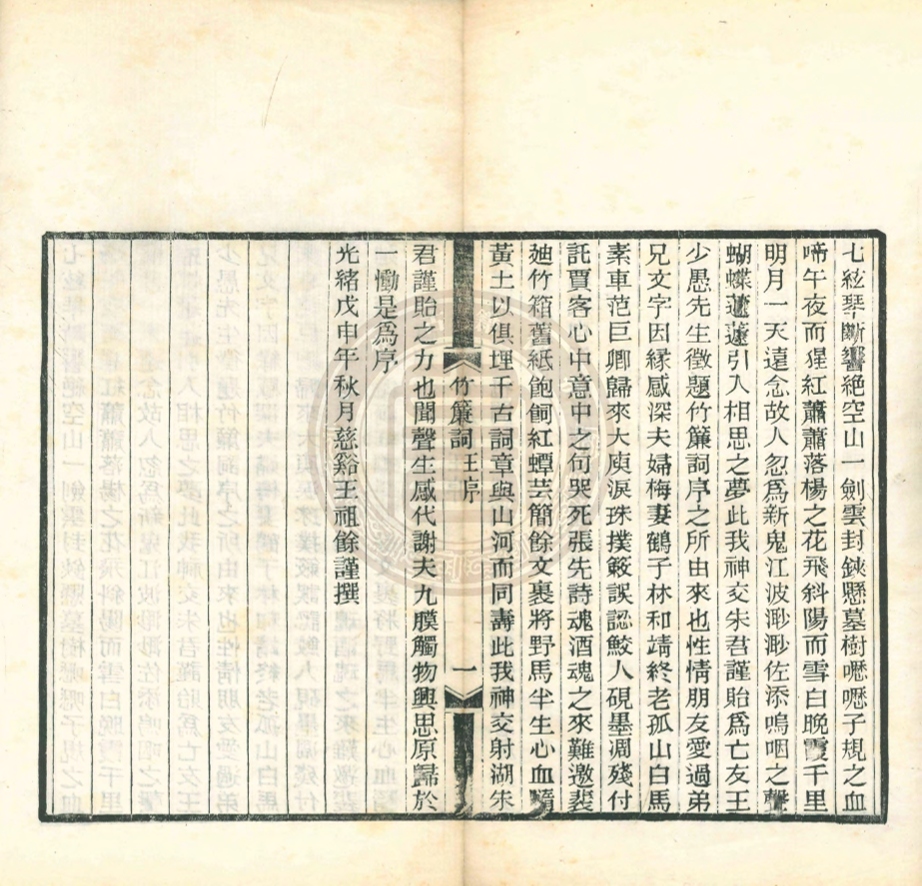 七絃琴斷響絶空山一劍雲封鋏懸墓樹嚦嚦子規之血
啼午夜而猩紅蕭蕭落楊之花飛斜陽而雪白晚霞千里
明月一天遠念故人忽爲新鬼江波渺渺佐添嗚咽之聲
蝴蝶蘧蘧引入相思之夢此我神交朱君謹貽爲亡友王
少愚先生徵題竹簾詞序之所由來也性情朋友愛過弟
兄文字因緣感深夫婦梅妻鶴子林和靖終老孤山白馬
素車范巨卿歸來大庾淚珠撲簌誤認鮫人硯墨凋殘付
託賈客心中意中之句哭死張先詩魂酒魂之來難邀裴
廸竹箱舊紙飽飼紅蟫芸簡餘文裹將野馬半生心血隨
黃土以俱埋千古詞章與山河而同壽此我神交射湖朱
竹簾詞 王序 一
君謹貽之力也聞聲生感代謝夫九膜觸物興思原歸於
一慟是爲序
光緒戊申年秋月慈谿王祖餘謹撰